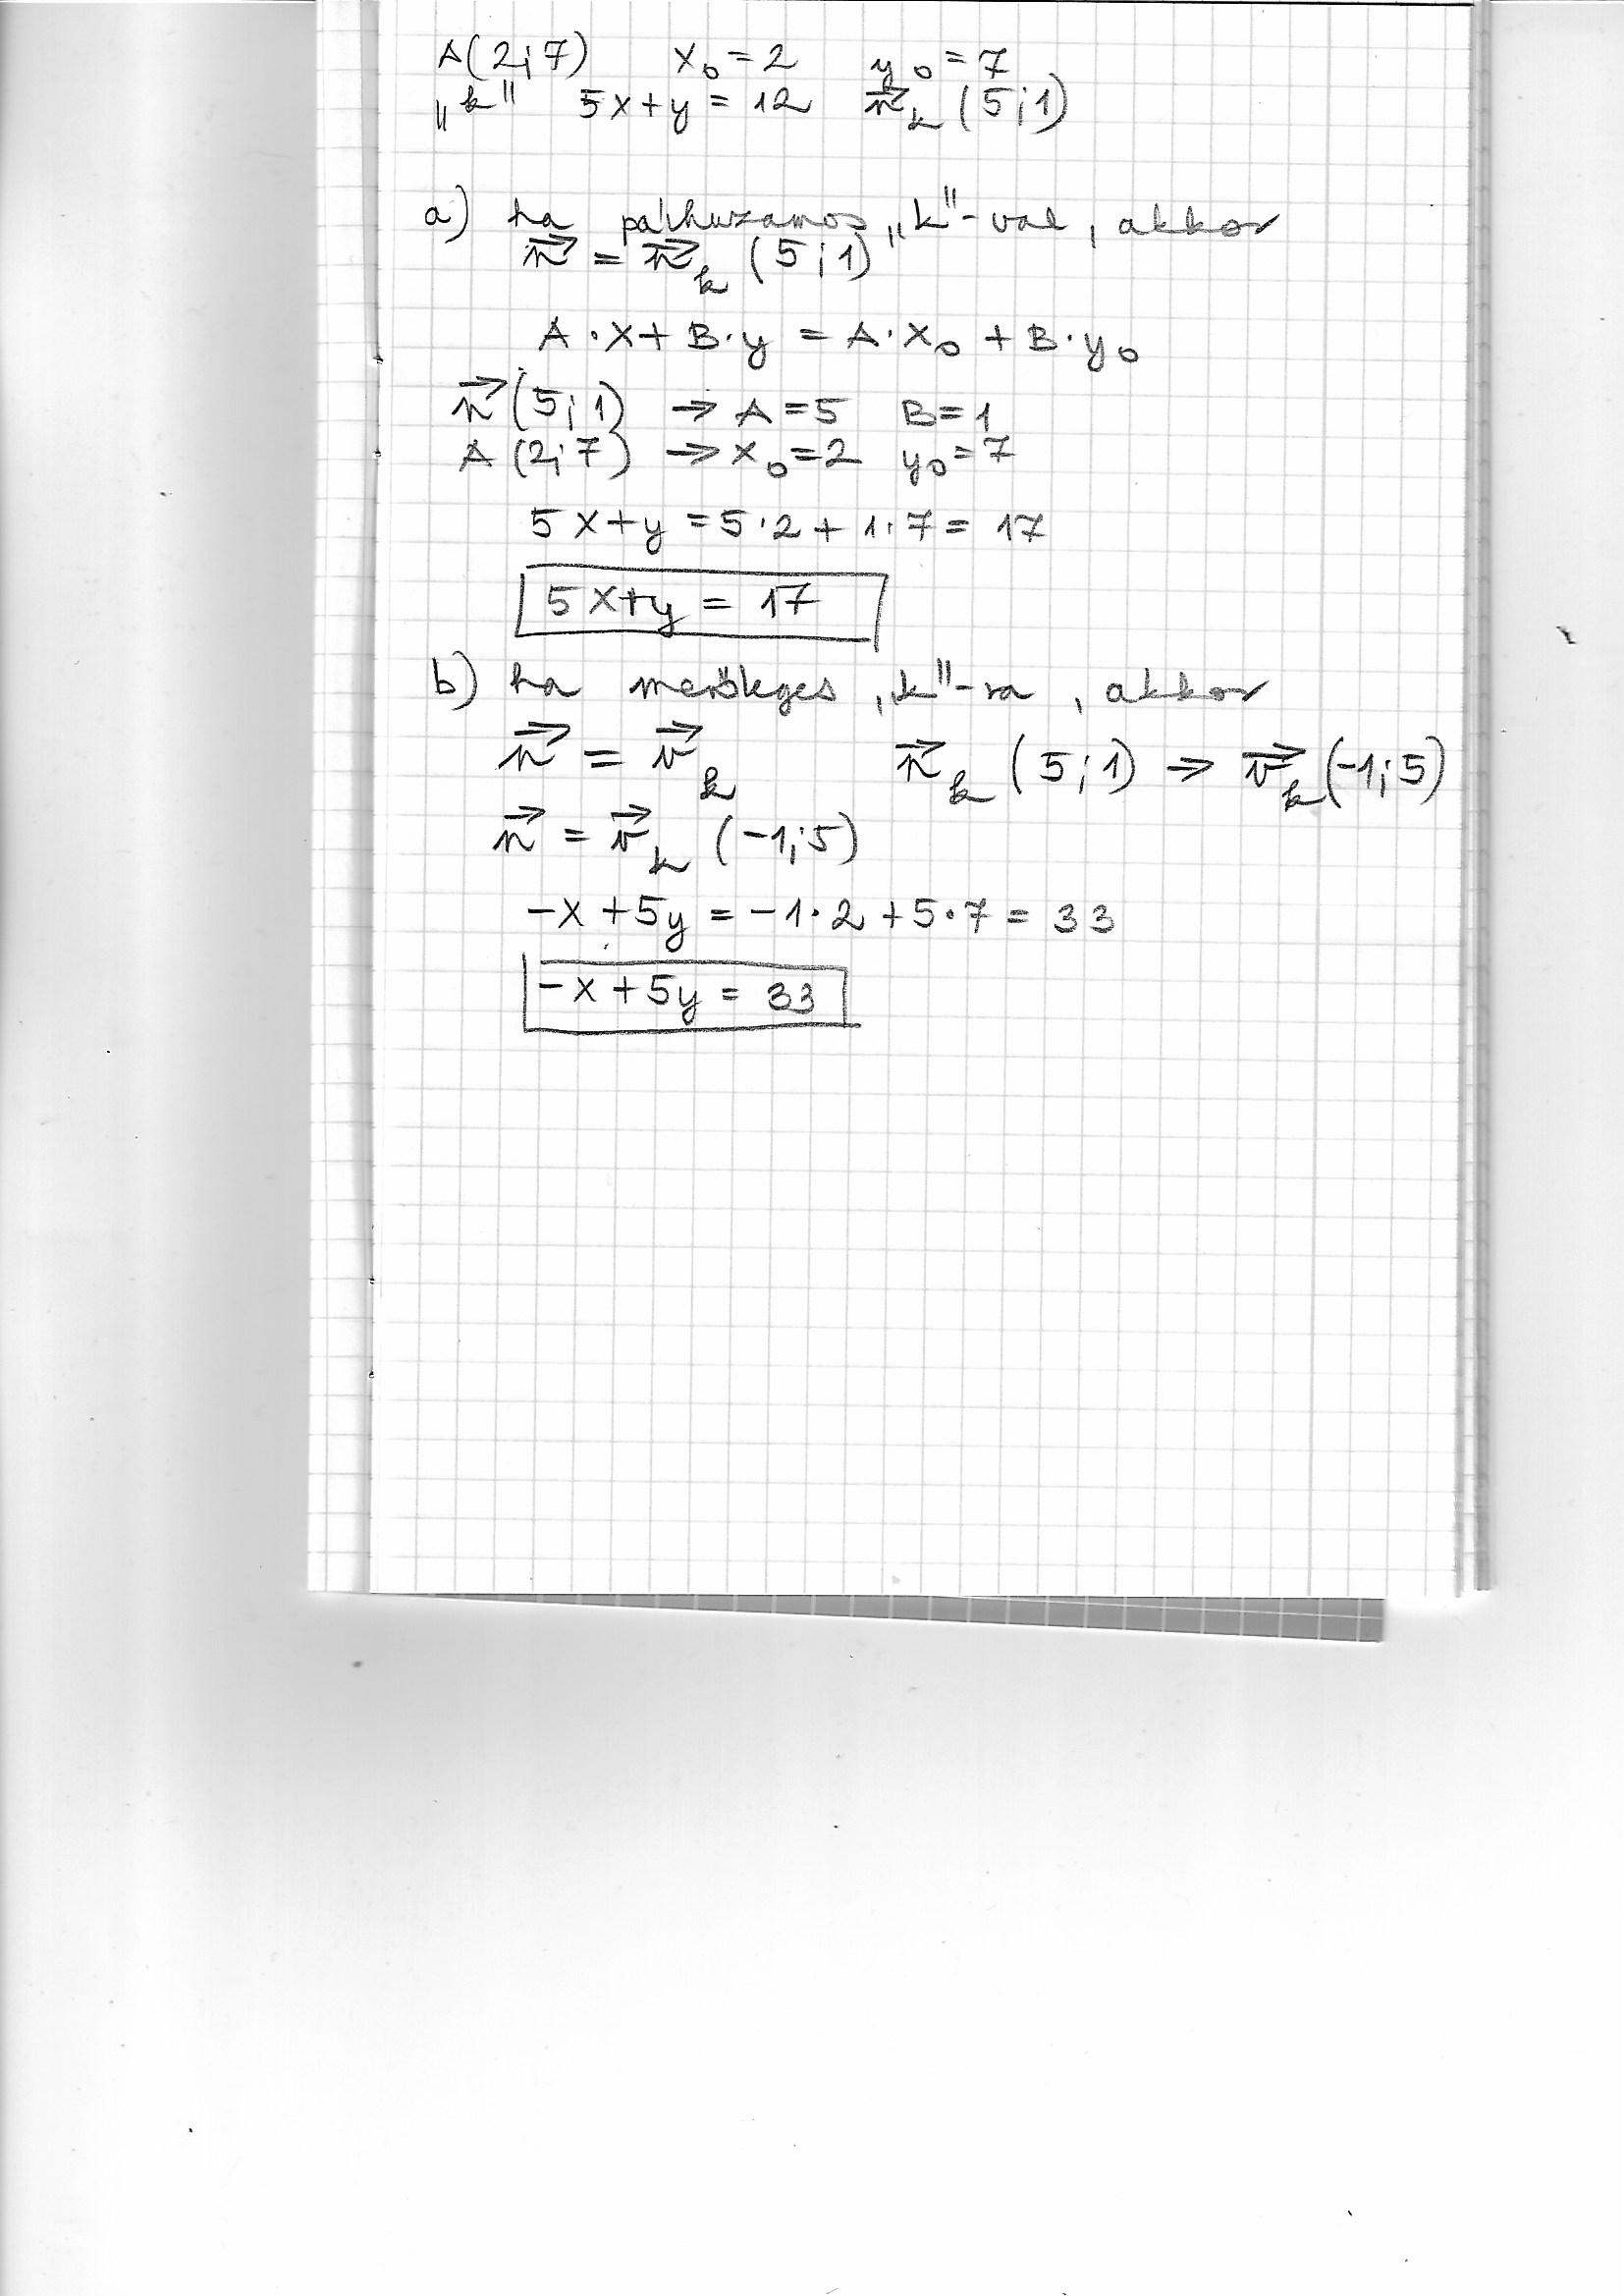 A(2;7) x₀=2 y₀=7
„k" 5x+y = 12 n⃗ₖ (5;1)
a) ha párhuzamos „k"-val, akkor
n⃗ = n⃗ₖ (5;1)
A·x+B·y = A·x₀ + B·y₀
n⃗(5;1) → A=5 B=1
A(2;7) → x₀=2 y₀=7
5x+y = 5·2 + 1·7 = 17
5x+y = 17
b) ha merőleges „k"-ra, akkor
n⃗ = v⃗ₖ n⃗ₖ (5;1) → v⃗ₖ(-1;5)
n⃗ = v⃗ₖ (-1;5)
-x+5y = -1·2 +5·7 = 33
-x+5y = 33